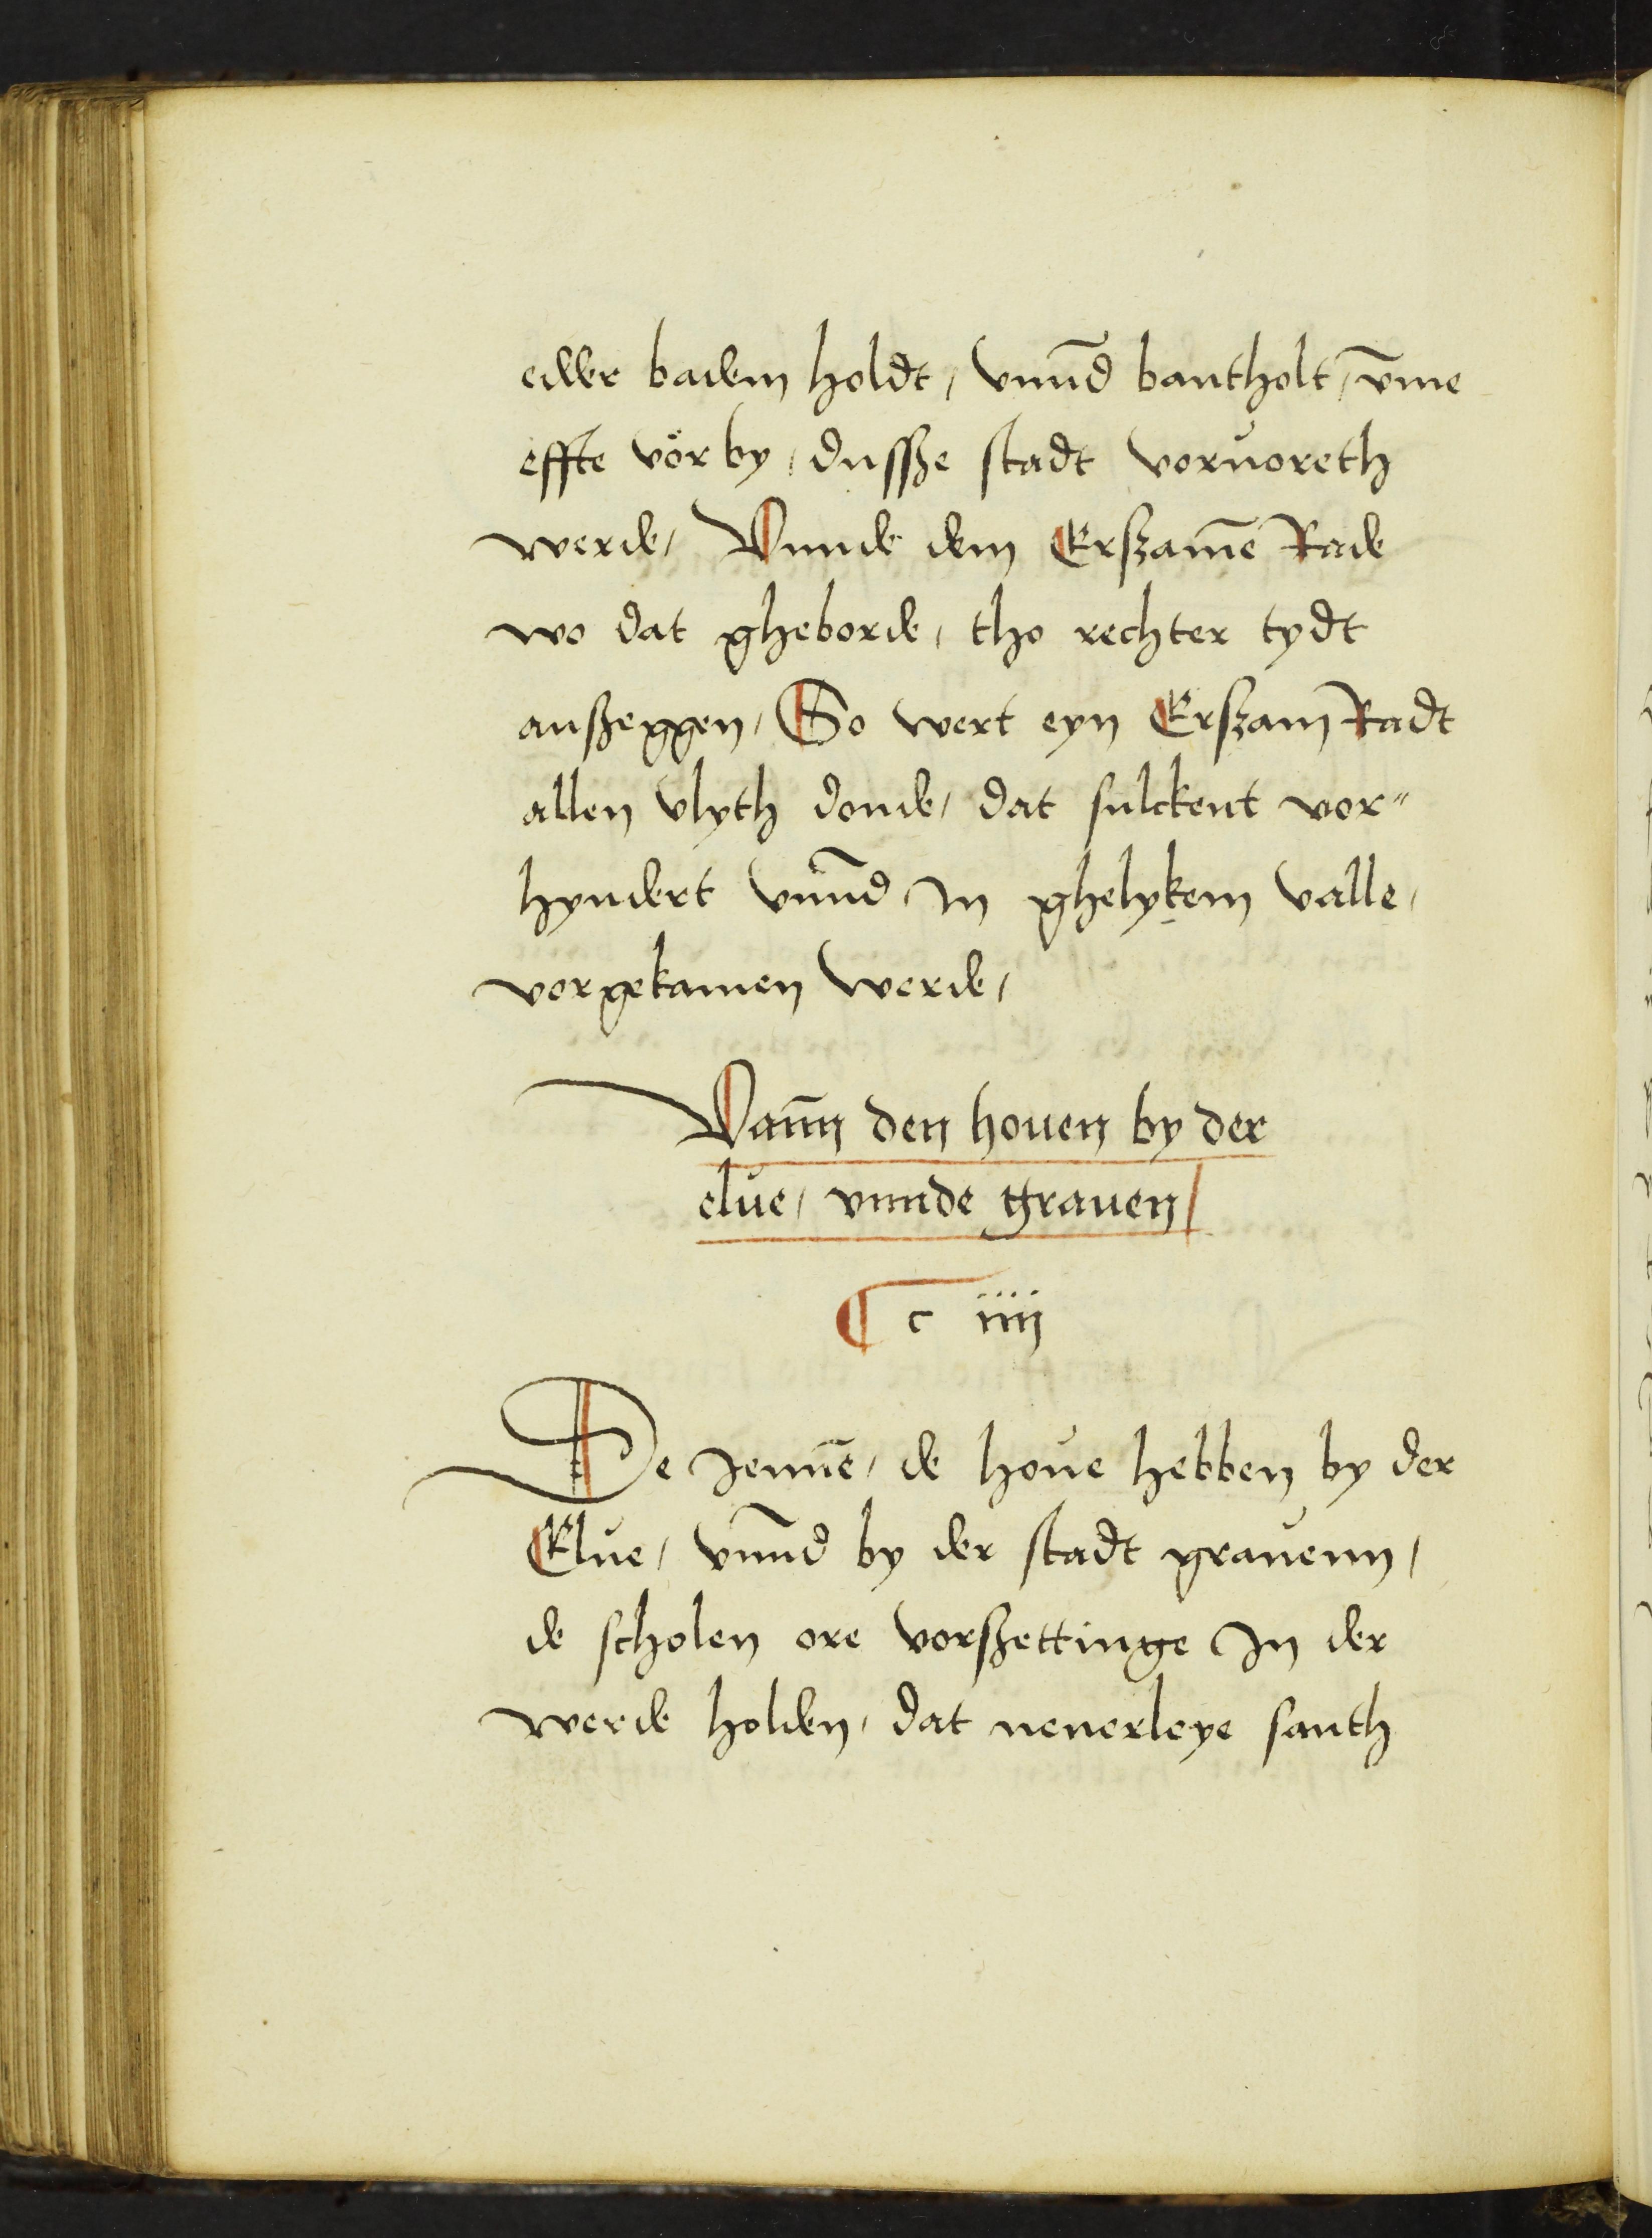 edder badem holdt / vnnd̄ bantholt / v̄me
effte vörby / dussze stadt voruoreth
werde / Vnnde dem Erszamē Rade
wo dat gheborde / tho rechter tydt
anszeggen / So wert eyn Erszam Radt
allen vlyth donde / dat sulckent vor"
hyndert vnnd̄ In ghelykem valle /
vorgekamen werde /
Vann̄ den houen by der
elue / vnnde grauen /
¶ c iiij
De Jennē / de houe hebben by der
Elue / vnnd̄ by der stadt grauenn /
de scholen ore vorszettinge In der
werde holden / dat nenerleye santh